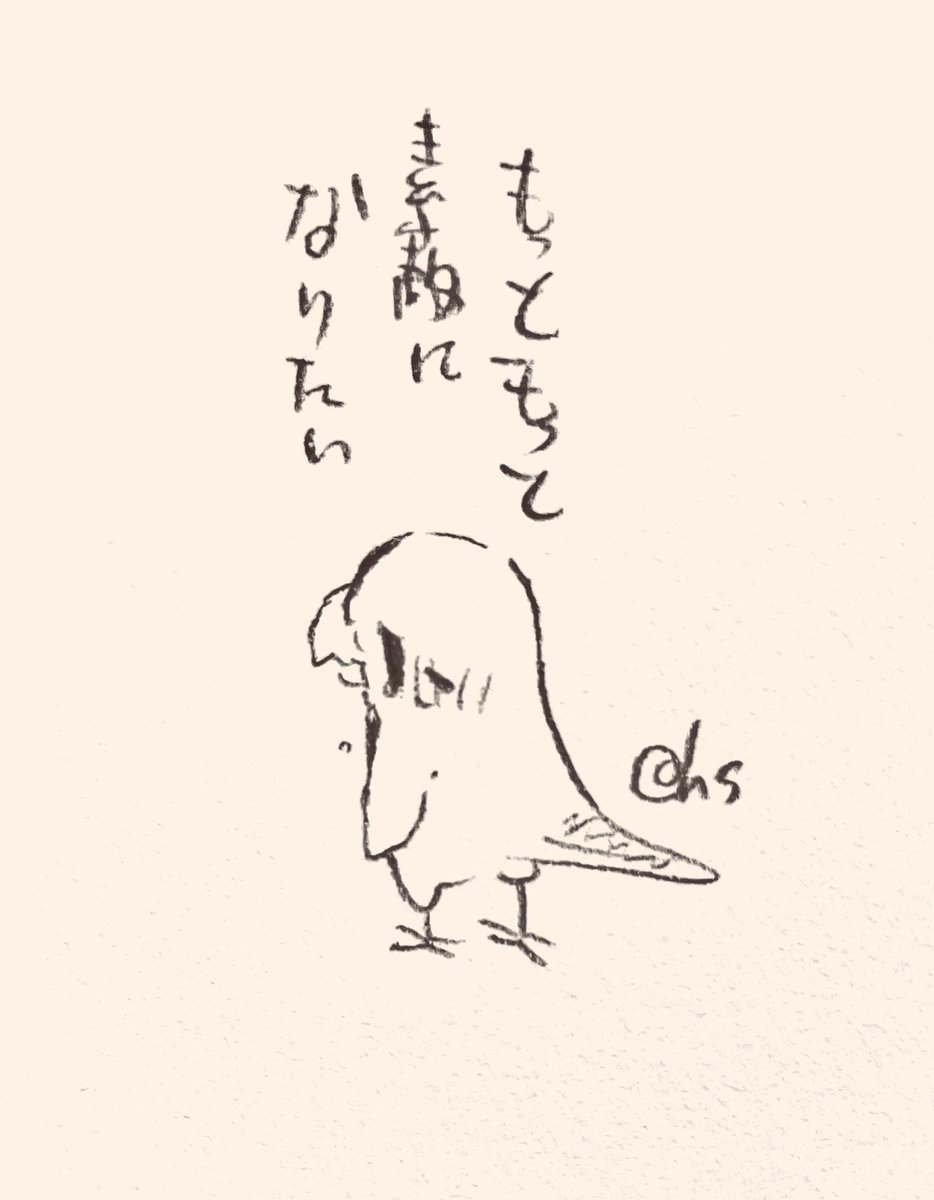 もっともっと
素敵に
なりたい
@hs